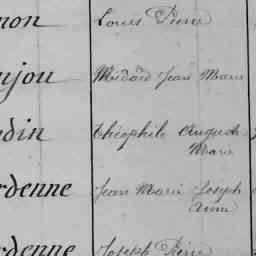 non Louis Pierre
njou Médard Jean Marie
din Théophile Auguste
Marie
rdenne Jean Marie Joseph
Anne
rdenne Joseph Pierre